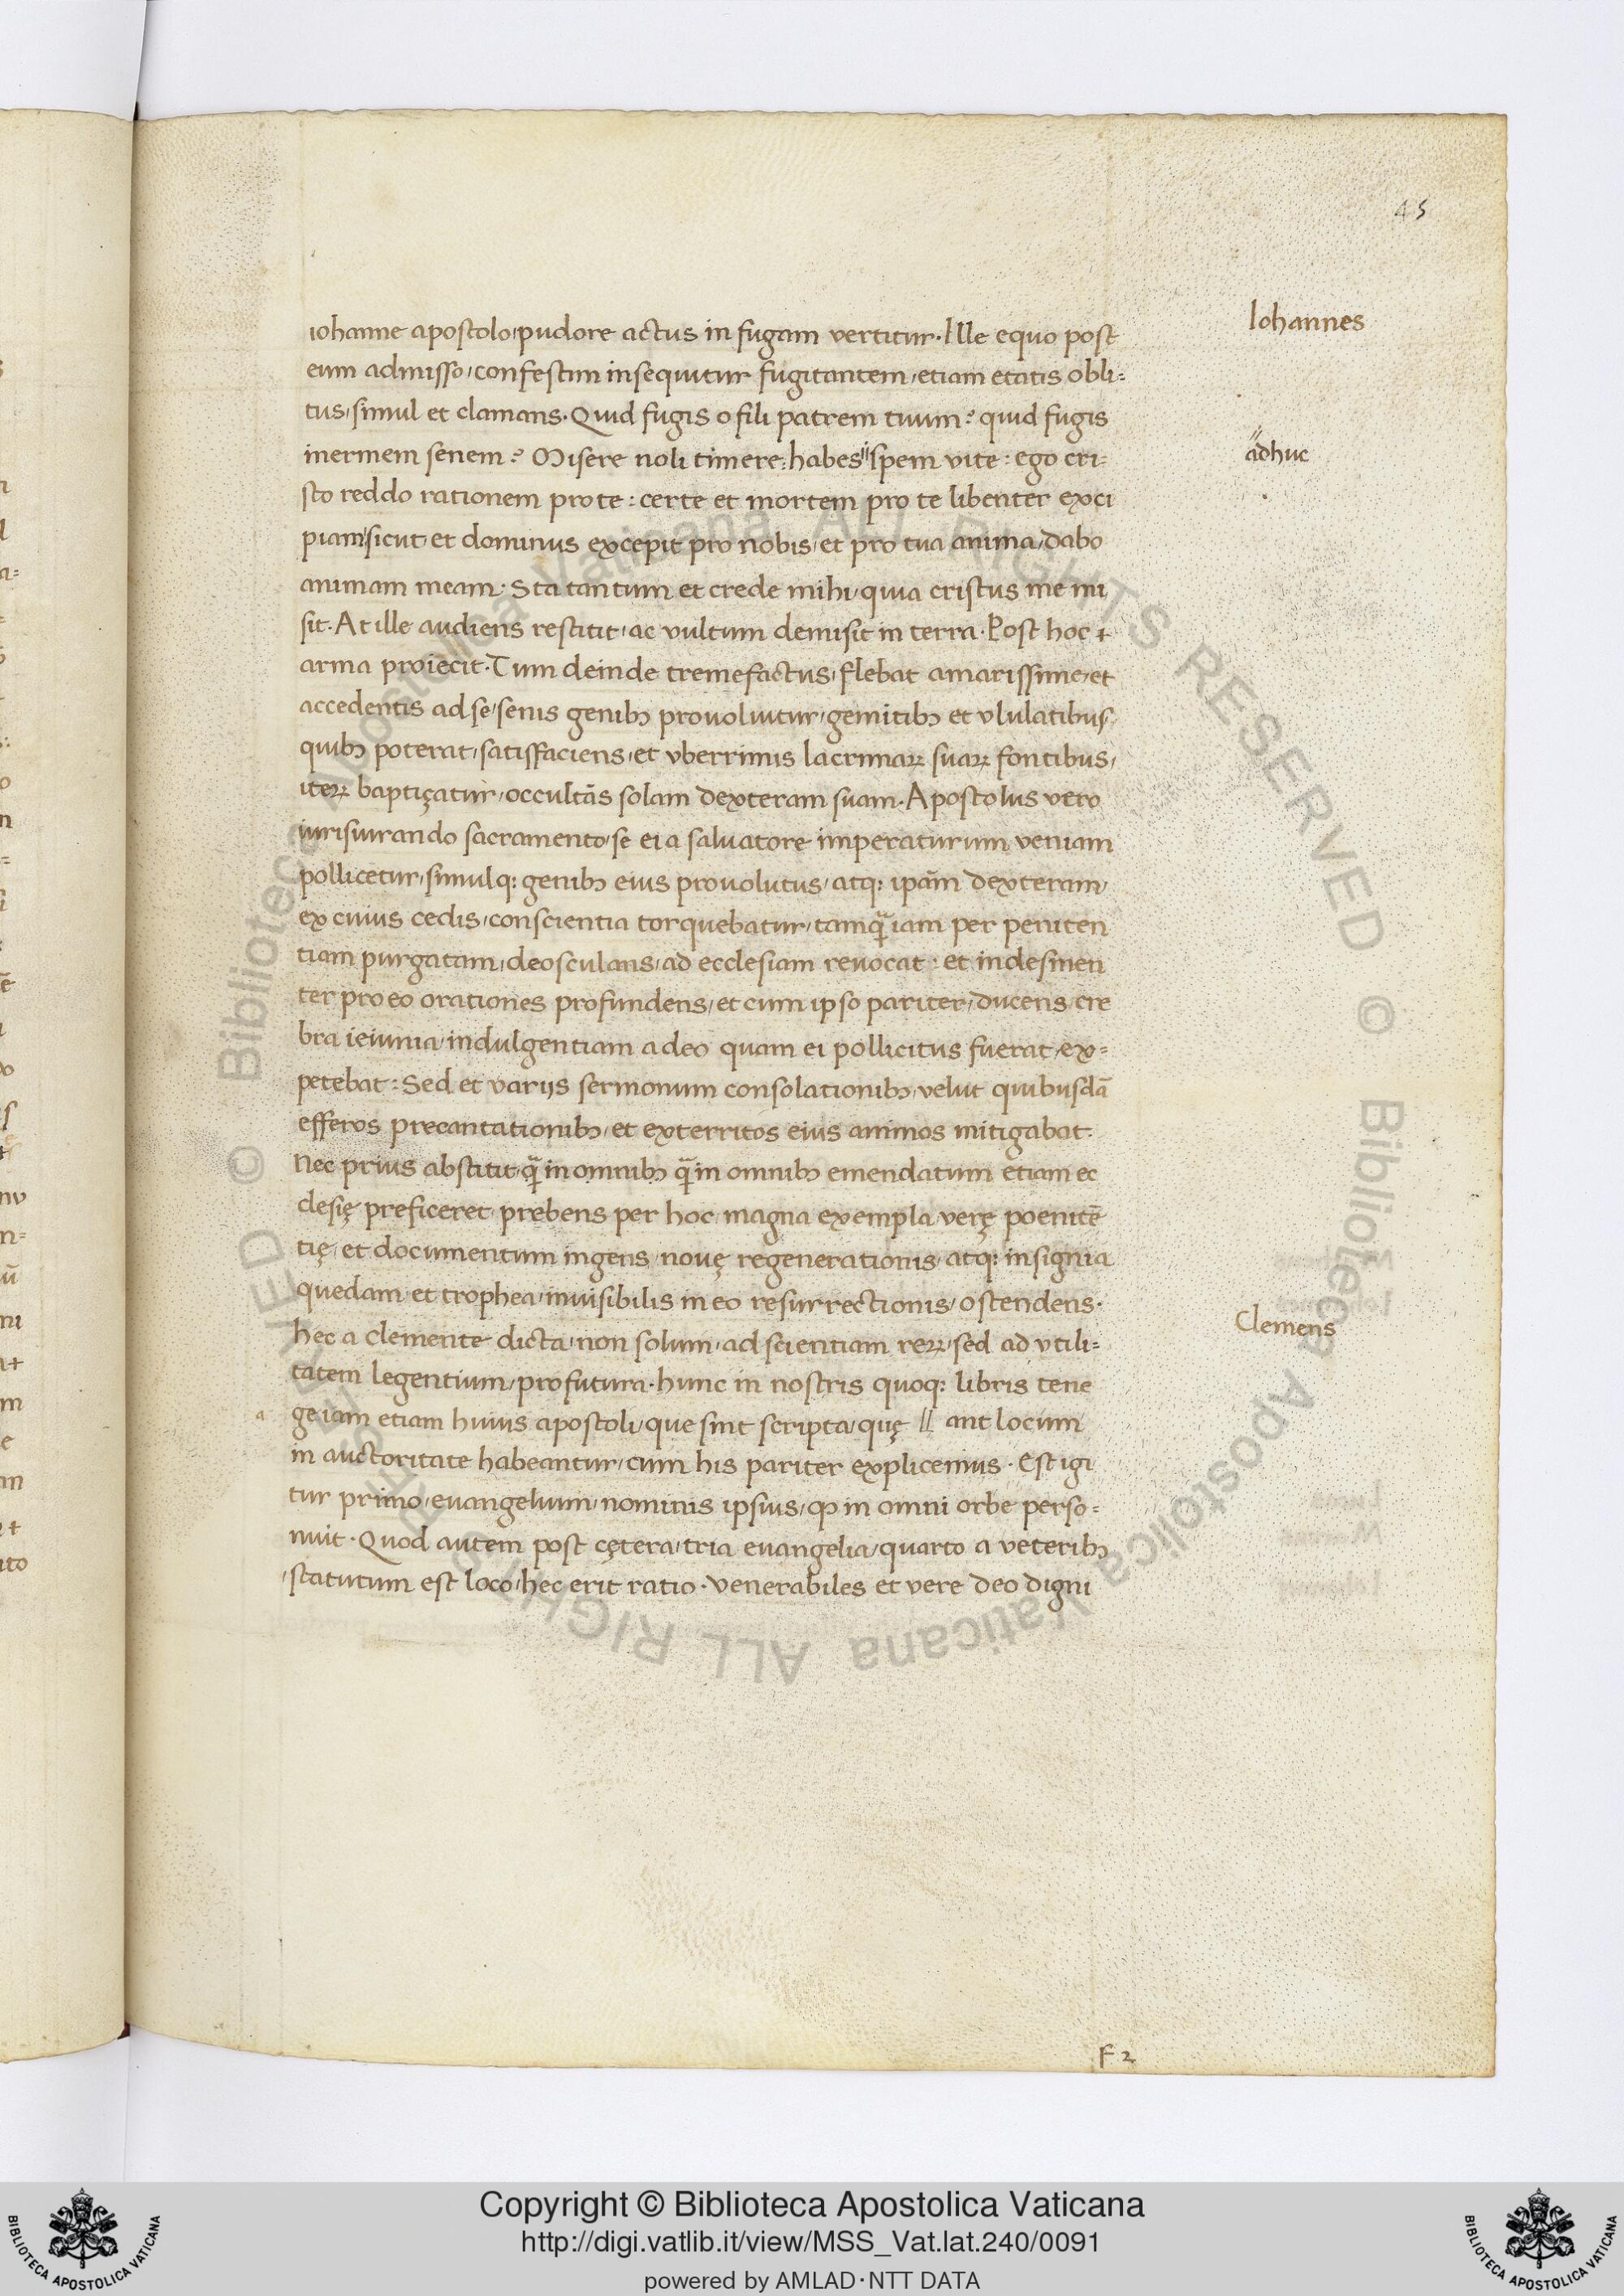 45
Iohannes
iohanne apostolo, pudore actus in fugam vertitur. Ille equo post
eum admisso, confestim insequitur fugitantem, etiam etatis obli=
tus, simul et clamans. Quid fugis o fili patrem tuum? quid fugis
inermem senem? Misere noli timere: habes" spem vite: ego cri-
"adhuc
sto reddo rationem pro te: certe et mortem pro te libenter exci
piam, sicut et dominus excepit pro nobis, et pro tua anima, dabo
animam meam. Sta tantum et crede mihi, quia cristus me mi
sit. At ille audiens restitit, ac vultum demisit in terra. Post hoc et
arma proiecit. Tum deinde tremefactus, flebat amarissime, et
accedentis ad se, senis genibꝫ prouoluitur, gemitibꝫ et vlulatibus,
quibꝫ poterat, satisfaciens, et vberrimis lacrimaꝝ suaꝝ fontibus,
iteꝝ baptiçatur, occultãs solam dexteram suam. Apostolus vero
iurisiurando sacramento, se ei a saluatore imperaturum veniam
pollicetur, simulq: genibꝫ eius prouolutus, atq: ipãm dexteram,
ex cuius cedis, conscientia torquebatur, tamq̃ iam per peniten
tiam purgatam, deosculans, ad ecclesiam reuocat: et indesinen
ter pro eo orationes profundens, et cum ipso pariter, ducens cre
bra ieiunia, indulgentiam a deo quam ei pollicitus fuerat, ex=
petebat: Sed et varijs sermonum consolationibꝫ, velut quibusdã
efferos precantationibꝫ, et exterritos eius animos mitigabat.
Nec prius abstitit, q̃ in omnibꝫ q̃ in omnibꝫ emendatum etiam ec
clesię preficeret, prebens per hoc, magna exempla, verę poenitẽ
tię, et documentum ingens, nouę regenerationis, atq: insignia
quedam, et trophea, inuisibilis in eo resurrectionis, ostendens.
hec a clemente dicta, non solum, ad scientiam reꝝ, sed ad vtili=
Clemens
tatem legentium, profutura. hunc in nostris quoq: libris tene
a ge iam etiam huius apostoli, que sint scripta, quę // ant locum
in auctoritate habeantur, cum his pariter explicemus. Est igi
tur primo, euangelium, nominis ipsius, qꝫ in omni orbe perso=
nuit. Quod autem post cętera, tria euangelia, quarto a veteribꝫ
statutum est loco, hec erit ratio. venerabiles et vere deo digni
F 2
Copyright © Biblioteca Apostolica Vaticana
http://digi.vatlib.it/view/MSS_Vat.lat.240/0091
powered by AMLAD·NTT DATA
BIBLIOTECA APOSTOLICA VATICANA
BIBLIOTECA APOSTOLICA VATICANA